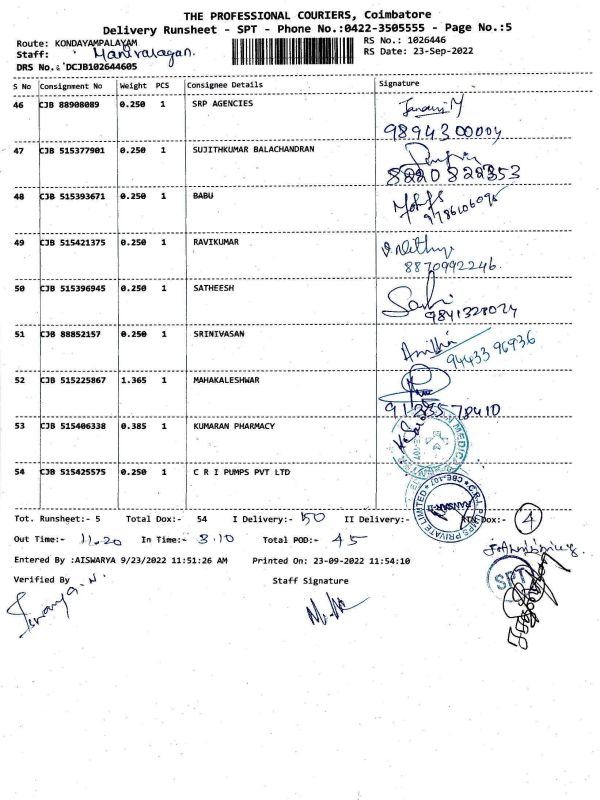 THE PROFESSIONAL COURIERS, Coimbatore
Delivery Runsheet - SPT - Phone No.:0422-3505555 - Page No.:5
Route: KONDAYAMPALAYAM RS No.: 1026446
Staff: Manivalagan. RS Date: 23-Sep-2022
DRS No.: DCJB102644605
S No Consignment No Weight PCS Consignee Details Signature
46 CJB 88908089 0.250 1 SRP AGENCIES
9894300004
47 CJB 515377901 0.250 1 SUJITHKUMAR BALACHANDRAN
8220822353
48 CJB 515393671 0.250 1 BABU
9786106095
49 CJB 515421375 0.250 1 RAVIKUMAR
8870992246.
50 CJB 515396945 0.250 1 SATHEESH
9841328024
51 CJB 88852157 0.250 1 SRINIVASAN
94433 96936
52 CJB 515225867 1.365 1 MAHAKALESHWAR
9123578410
53 CJB 515406338 0.385 1 KUMARAN PHARMACY
54 CJB 515425575 0.250 1 C R I PUMPS PVT LTD
C.R.I. PUMPS PRIVATE LIMITED
Tot. Runsheet:- 5 Total Dox:- 54 I Delivery:- 50 II Delivery:- RTN Dox:- 4
Out Time:- 11.20 In Time:- 3.10 Total POD:- 45
Entered By :AISWARYA 9/23/2022 11:51:26 AM Printed On: 23-09-2022 11:54:10
Verified By Staff Signature
SPT